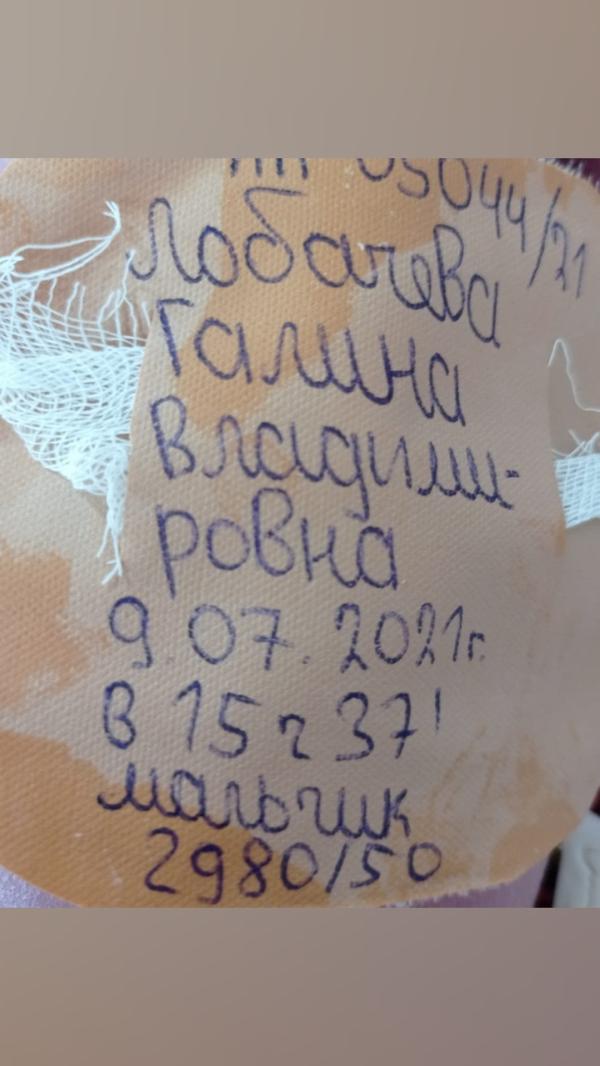 05044/21
Лобачева
Галина
Владими-
ровна
9.07.2021г.
в 15 ч 37'
мальчик
2980/50